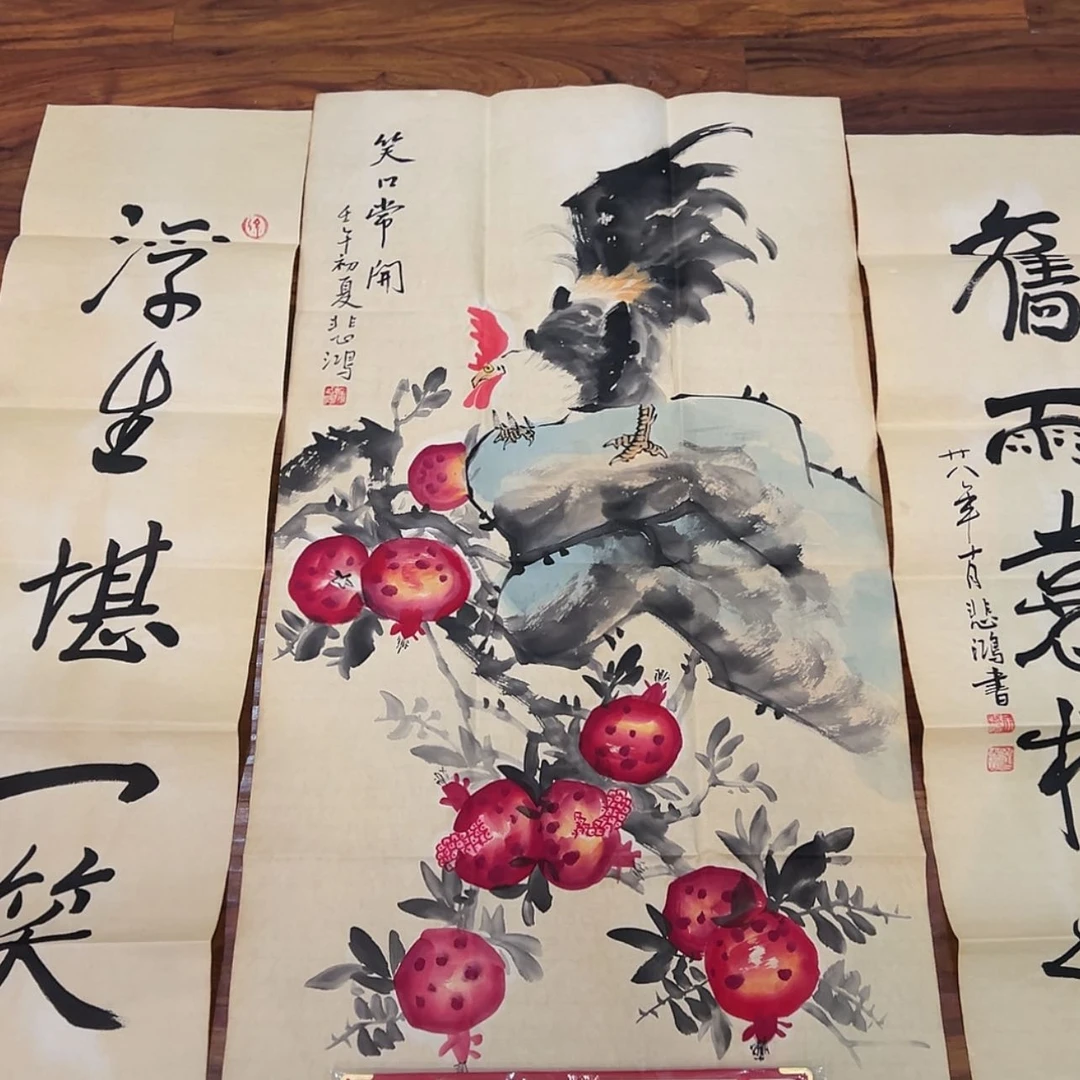 舊雨
廿八年十月悲鴻書
笑口常開
壬午初夏悲鴻
浮生堪一笑